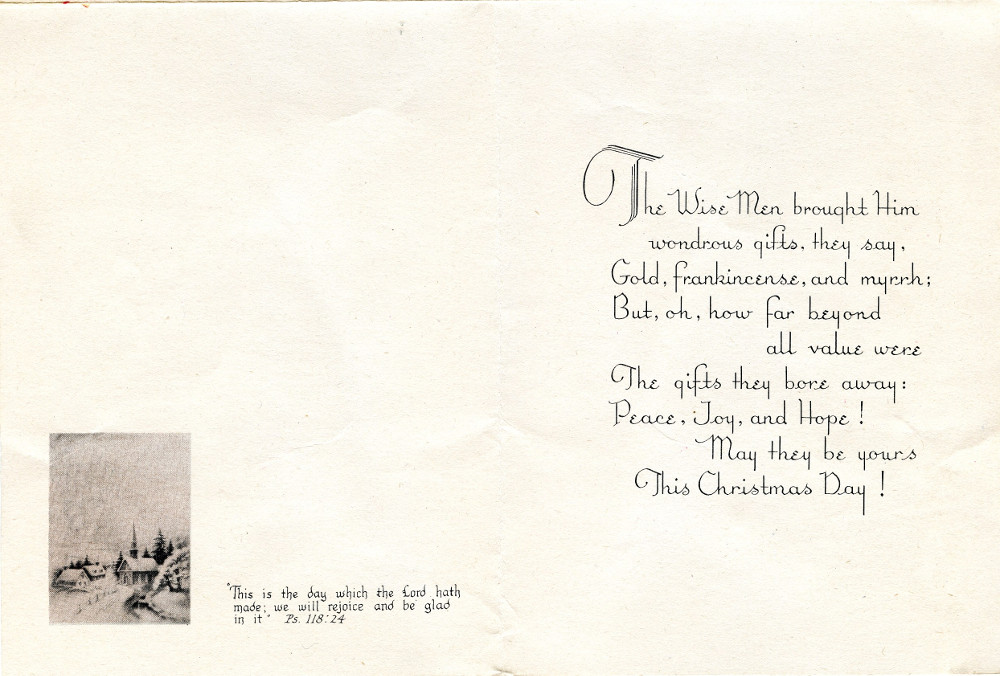 "This is the day which the Lord hath
made; we will rejoice and be glad
in it" Ps. 118:24
The Wise Men brought Him
wondrous gifts, they say,
Gold, frankincense, and myrrh;
But, oh, how far beyond
all value were
The gifts they bore away:
Peace, Joy, and Hope!
May they be yours
This Christmas Day!